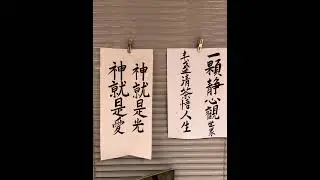 一顆静心觀世界
半盏清茶悟人生
神就是光
神就是愛